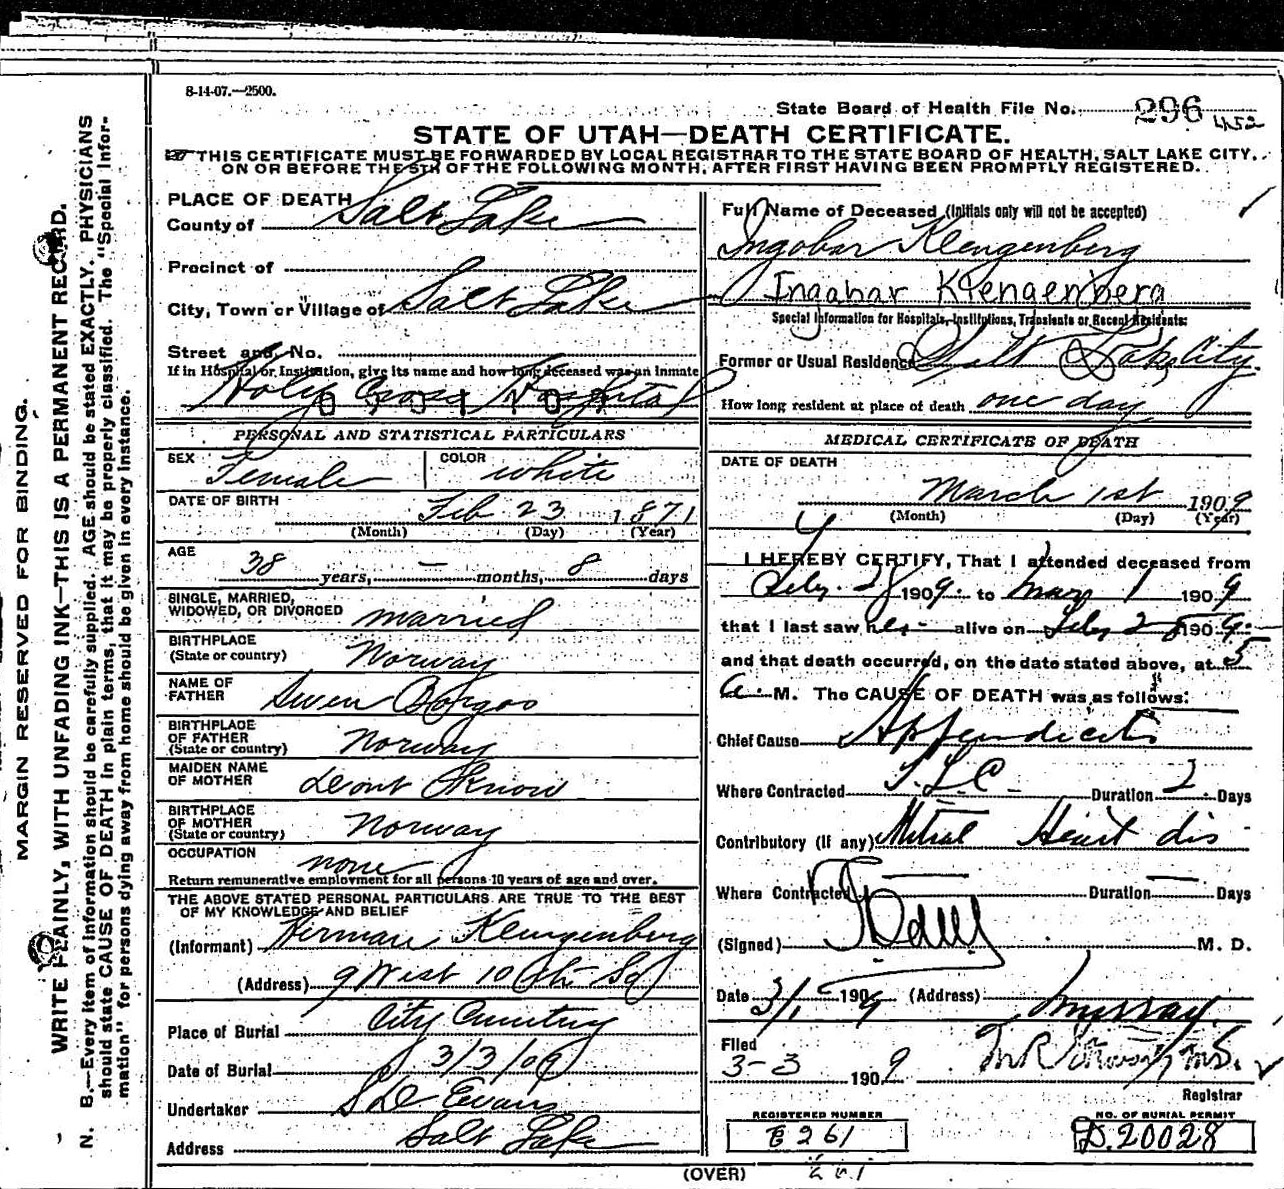 8-14-07.—2500.
State Board of Health File No. 296 452
STATE OF UTAH—DEATH CERTIFICATE.
THIS CERTIFICATE MUST BE FORWARDED BY LOCAL REGISTRAR TO THE STATE BOARD OF HEALTH, SALT LAKE CITY,
ON OR BEFORE THE 5TH OF THE FOLLOWING MONTH, AFTER FIRST HAVING BEEN PROMPTLY REGISTERED.
MARGIN RESERVED FOR BINDING.
WRITE PLAINLY, WITH UNFADING INK—THIS IS A PERMANENT RECORD.
N. B.—Every item of information should be carefully supplied. AGE should be stated EXACTLY. PHYSICIANS
should state CAUSE OF DEATH in plain terms, that it may be properly classified. The "Special Infor-
mation" for persons dying away from home should be given in every instance.
PLACE OF DEATH
County of Salt Lake
Precinct of
City, Town or Village of Salt Lake
Street and No.
If in Hospital or Institution, give its name and how long deceased was an inmate
Holy Cross Hospital
PERSONAL AND STATISTICAL PARTICULARS
SEX Female COLOR white
DATE OF BIRTH Feb 23 1871
(Month) (Day) (Year)
AGE 38 years, — months, 8 days
SINGLE, MARRIED,
WIDOWED, OR DIVORCED married
BIRTHPLACE
(State or country) Norway
NAME OF
FATHER Swen
BIRTHPLACE
OF FATHER
(State or country) Norway
MAIDEN NAME
OF MOTHER dont Know
BIRTHPLACE
OF MOTHER
(State or country) Norway
OCCUPATION none
Return remunerative employment for all persons 10 years of age and over.
THE ABOVE STATED PERSONAL PARTICULARS ARE TRUE TO THE BEST
OF MY KNOWLEDGE AND BELIEF
(Informant) Herman Klengenberg
(Address) 9 West 10th So
Place of Burial City Cemetery
Date of Burial 3/3/09
Undertaker S D Evans
Address Salt Lake
Full Name of Deceased (Initials only will not be accepted)
Ingobar Klengenberg
Ingabar Klengenberg
Special Information for Hospitals, Institutions, Transients or Recent Residents:
Former or Usual Residence Salt Lake City.
How long resident at place of death one day
MEDICAL CERTIFICATE OF DEATH
DATE OF DEATH
March 1st 1909
(Month) (Day) (Year)
I HEREBY CERTIFY, That I attended deceased from
Feby. 28 1909. to Mar 1 1909
that I last saw her alive on Feby 28 1909.
and that death occurred, on the date stated above, at 5
a. M. The CAUSE OF DEATH was as follows:
Chief Cause Appendicitis
Where Contracted S.L.C. Duration 2 Days
Contributory (if any) Mitral Heart dis
Where Contracted — Duration — Days
(Signed) M. D.
Date 3/1 1909 (Address) Murray
Filed
3-3 1909
Registrar
REGISTERED NUMBER
E 261
NO. OF BURIAL PERMIT
D.20028
(OVER)